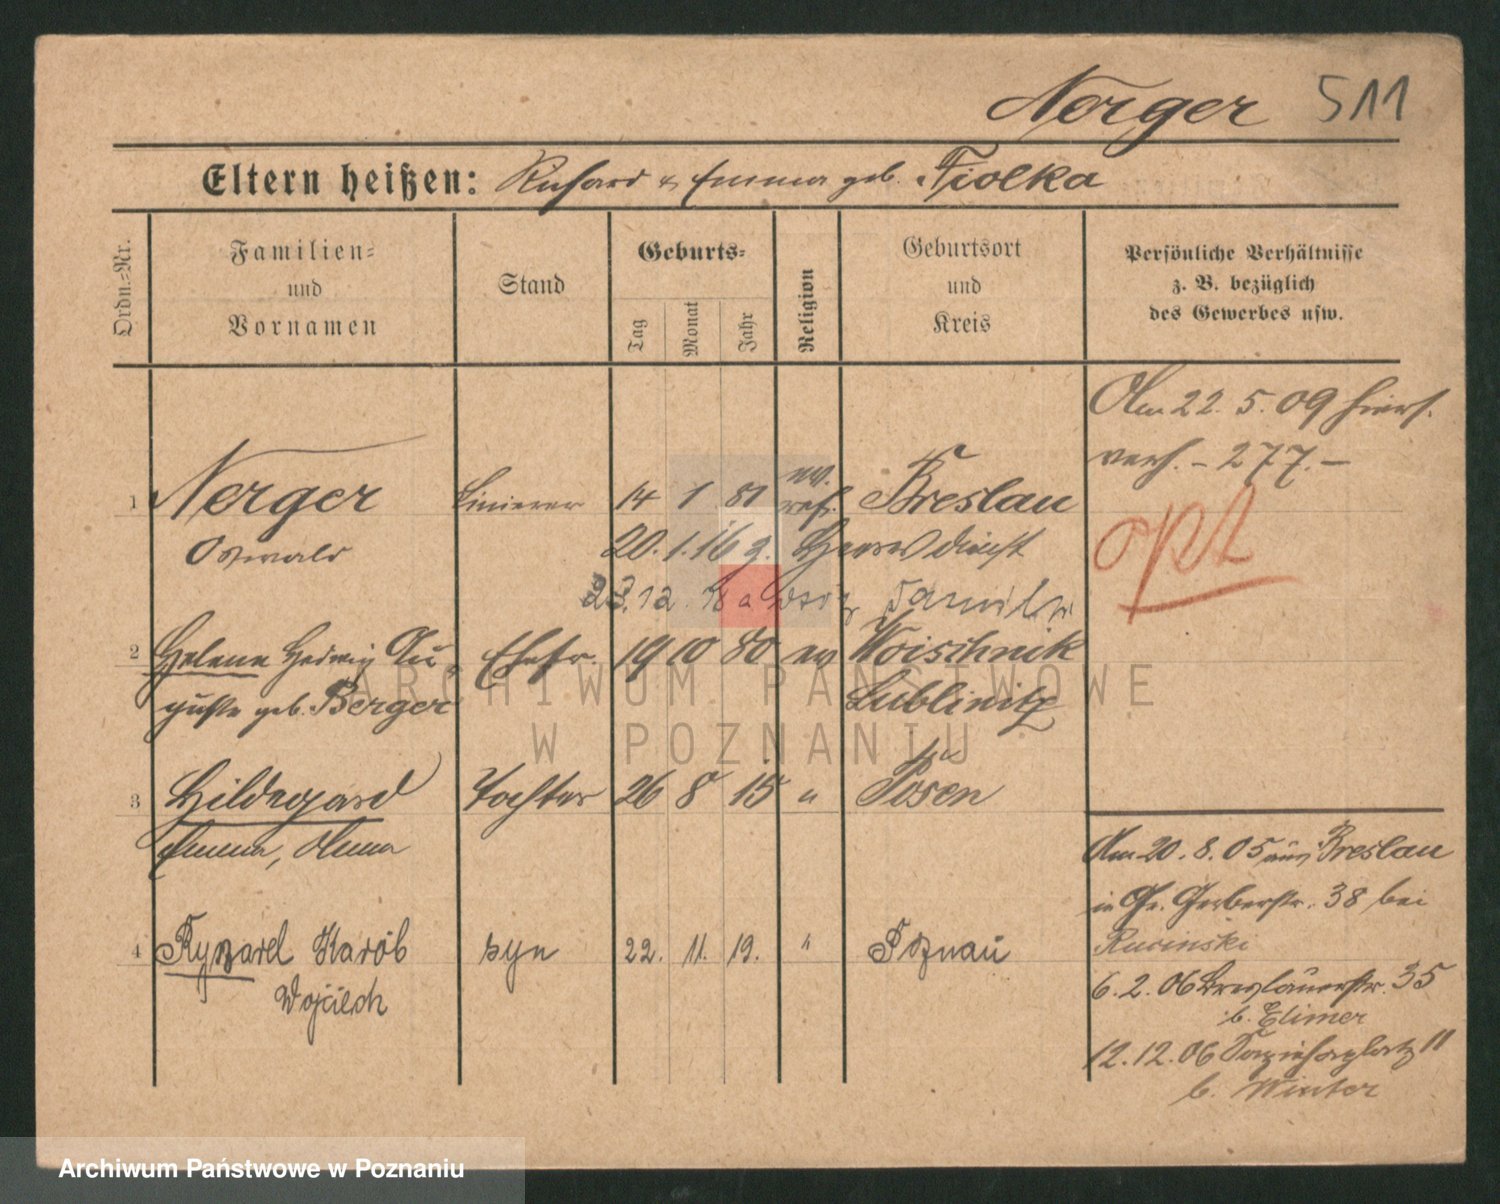 Nerger 511
Eltern heißen: Richard & Emma geb. Fiolka
Ordn.-Nr.
Familien-
und
Vornamen
Stand
Geburts-
Tag
Monat
Jahr
Religion
Geburtsort
und
Kreis
Persönliche Verhältnisse
z. B. bezüglich
des Gewerbes usw.
Am 22. 5. 09 hiers.
verh. - 277. -
1 Nerger Linierer 14 1 81 ev. ref. Breslau
opt
Oswald 20. 1. 16 z. Heeresdienst
23. 12. 18 a
2 Helene Hedwig Au- Ehefr. 19 10 80 ev Woischnik
guste geb. Berger Lublinitz
3 Hildegard Tochter 26 8 15 " Posen
Emma, Anna
4 Ryszard Karól syn 22. 11. 19. " Poznań
Wojciech
Am 20. 8. 05 aus Breslau
in Gr. Gerberstr. 38 bei
Rusinski
6. 2. 06 Breslauerstr. 35
b. Elimer
12. 12. 06 Sapiehaplatz 11
b. Winter
ARCHIWUM PAŃSTWOWE
W POZNANIU
Archiwum Państwowe w Poznaniu